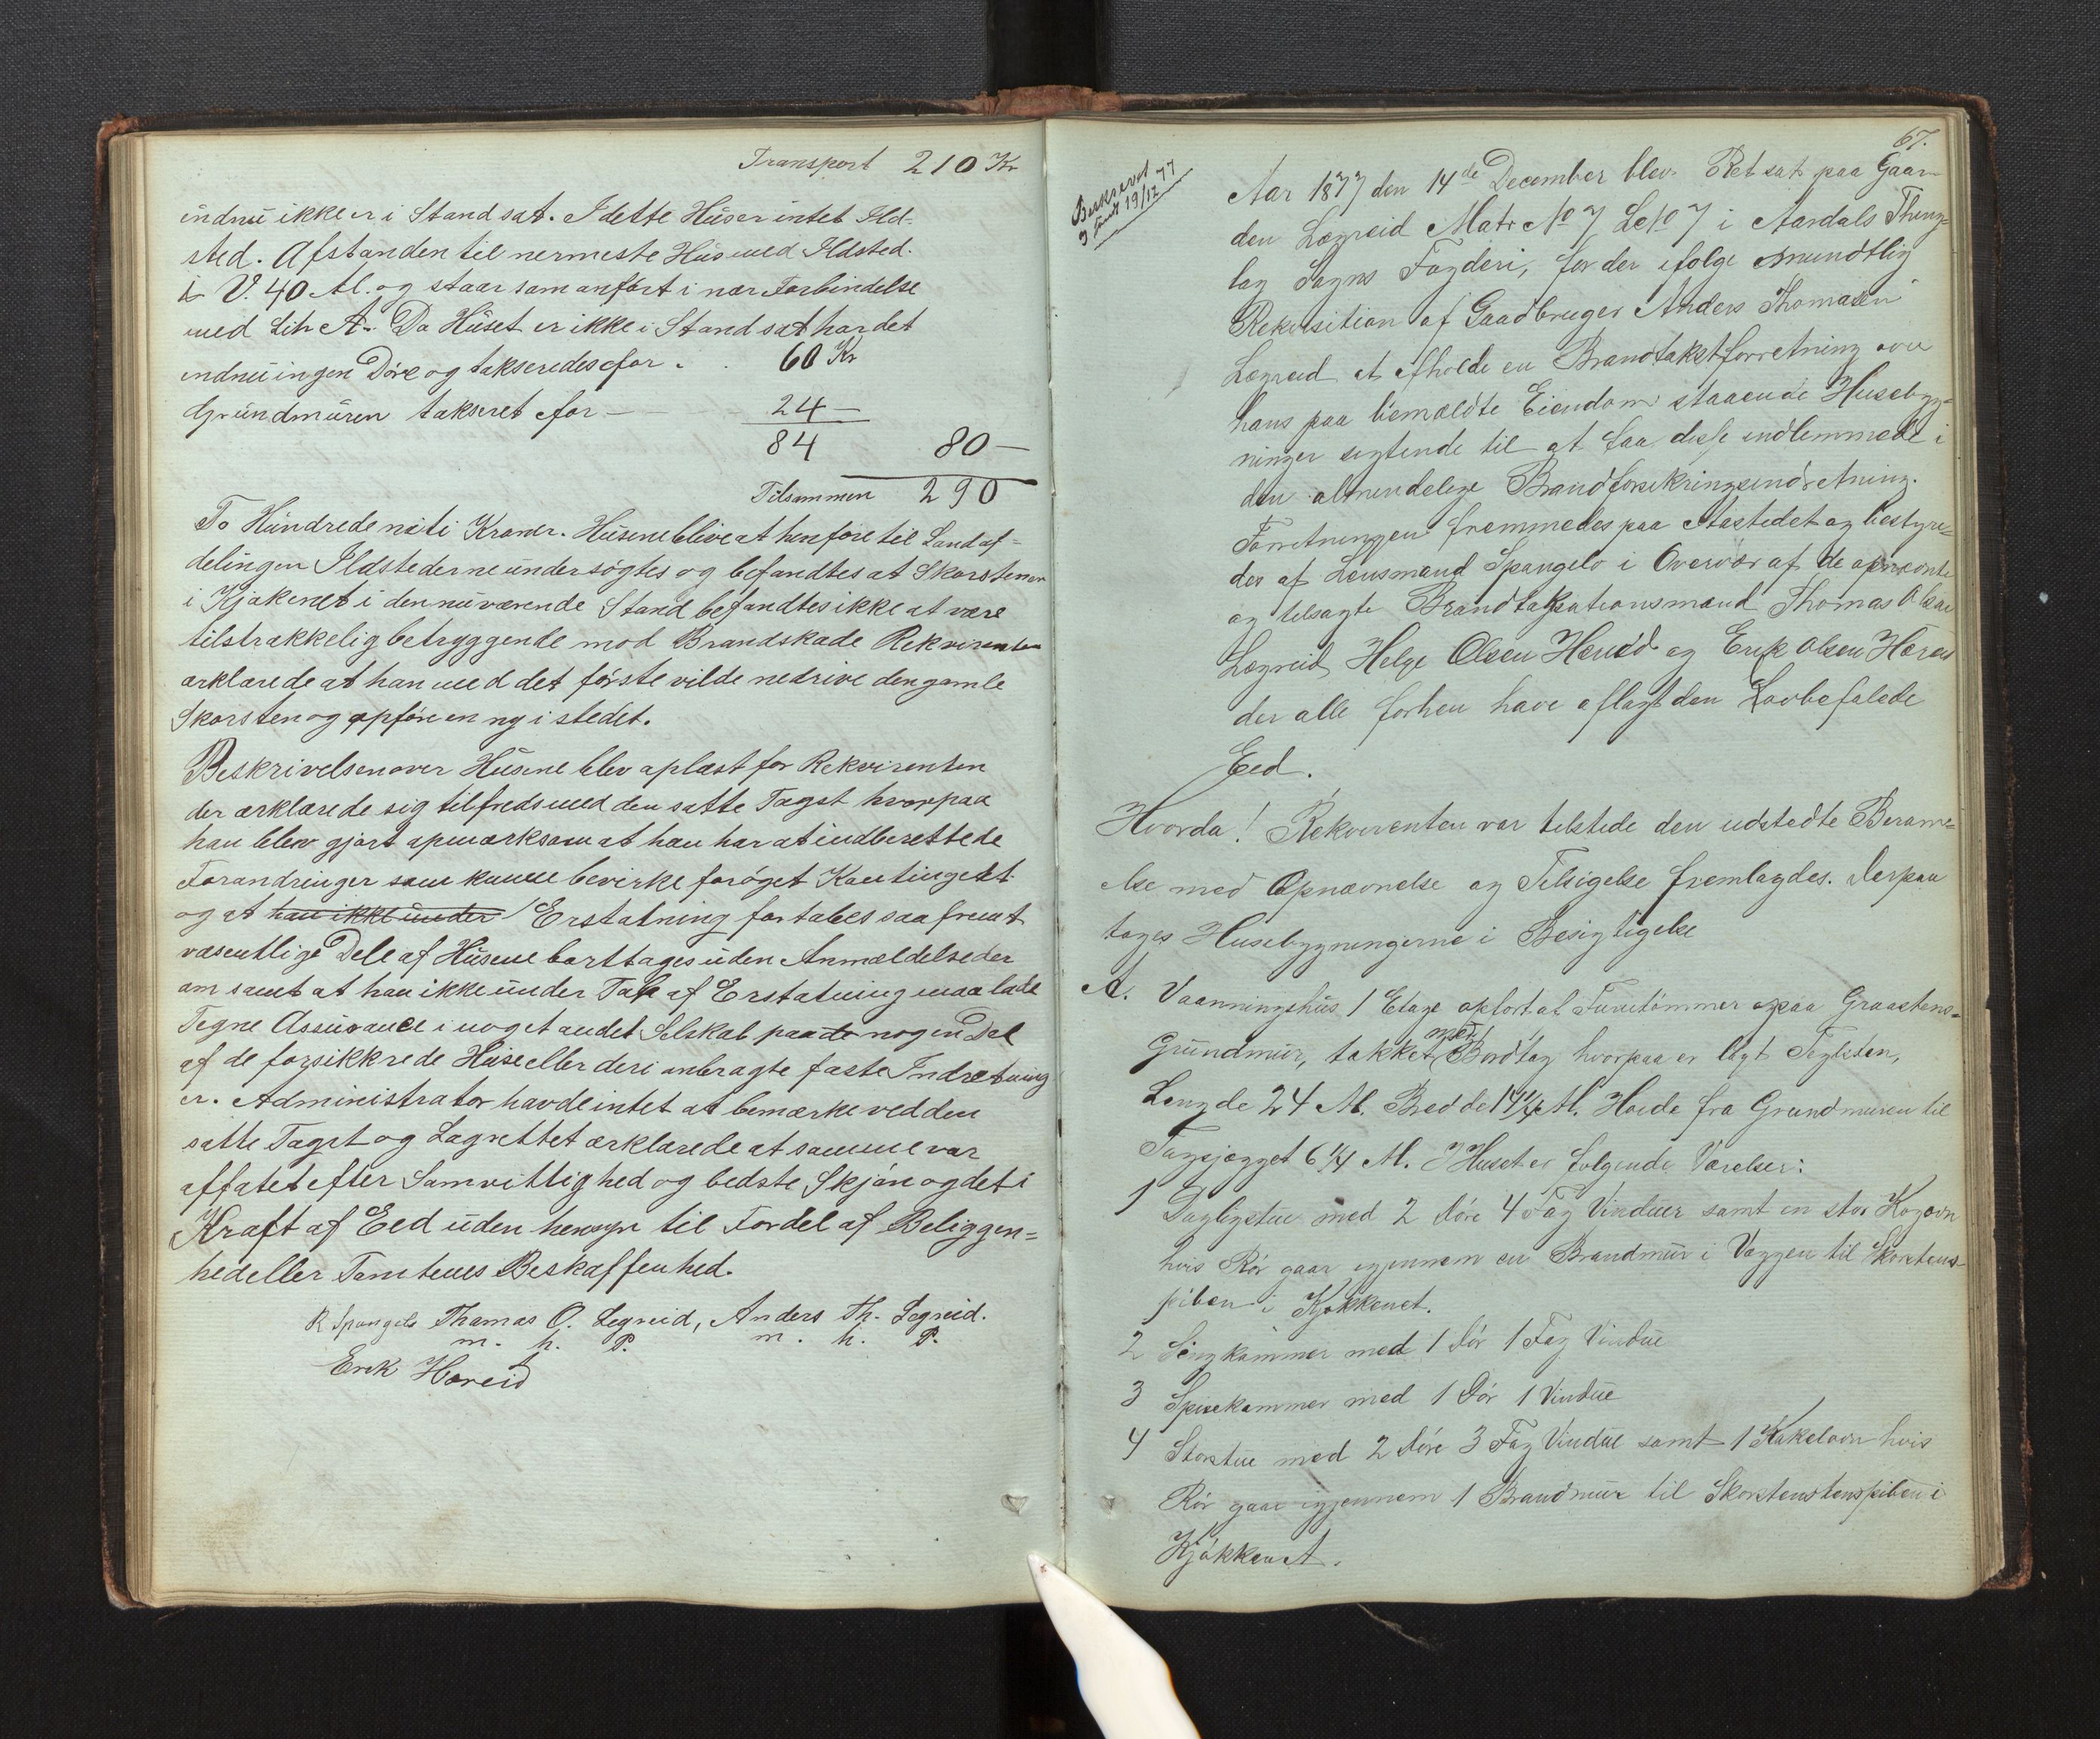 Transport 210 Kr
endnu ikke er i Stand sat. I dette Hus er intet Ild-
sted. Afstanden til nermeste Hus med Ildsted.
i V. 40 Al. og staar som anført i nær Forbindelse
med Litr A. Da Huset er ikke i Stand sat har det
endnu ingen Døre og takseredes for . . 60 Kr
Grundmuren takseret for — 24 —
84 80 —
Tilsammen 290
To Hundrede niti Kroner. Husene blive at henføre til Landaf=
delingen Ildstederne undersøgtes og befandtes at Skorstenen
i Kjøkenet i den nuværende Stand befandtes ikke at være
tilstrækkelig betryggende mod Brandskade Rekvirenten
ærklærede at han med det første vilde nedrive den gamle
Skorsten og opføre en ny i stedet.
Beskrivelsen over Husene blev oplæst for Rekvirenten
der ærklærede sig tilfreds med den satte Tagst hvorpaa
han blev gjort opmærksom at han har at indberette de
Forandringer som kunne bevirke forøget Kontingent
og at han ikke under Erstatning fortabes saafremt
væsentlige Dele af Husene borttages uden Anmældelse der
om samt at han ikke under Tab af Erstatning maa lade
Tegne Assurance i noget andet Selskab paa de nogen Del
af de forsikkrede Huse eller deri anbragte faste Indretning
er. Administrator havde intet at bemærke ved den
satte Tagst og Lagrettet ærklærede at samme var
affatet efter Samvittighed og bedste Skjøn og det i
Kraft af Eed uden hensyn til Fordel af Beliggen=
hed eller Tomtenes Beskaffenhed.
R Spangelo Thomas O. Legreid, Anders Th. Legreid.
m. h. P. m. h. P.
Erik Hæreid
67.
Beskrevet
19/12 77
Aar 1877 den 14de December blev Ret sat paa Gaar-
den Lægreid Matr No 7 L No 7 i Aardals Thing=
lag Sogns Fogderi, for der ifølge mundtlig
Rekvisition af Gaadbruger Anders Thomasen
Lægreid at afholde en Brandtakstforretning over
hans paa bemældte Eiendom staaende Husebyg=
ninger sigtende til at faa disse indlemmede i
den almindelige Brandforsikringsindretning.
Forretningen fremmedes paa Aastedet og bestyre=
des af Lensmand Spangelo i Overvær af de opnævnte
og tilsagte Brandtaksationsmænd Thomas Olsen
Lægreid Helge Olsen Hereid og Erik Olsen Hæreid
der alle forhen have aflagt den Lovbefalede
Eed.
Hvorda! Rekvirenten var tilstede den udstedte Beram=
else med Opnævnelse og Tilsigelse fremlagdes. Derpaa
toges Husebygningerne i Besigtigelse
A. Vaanningshus 1 Etage opført af Furutømmer og paa Graastens=
Grundmur, takket med Bordtag hvorpaa er lagt Teglsten,
Lengde 24 Al. Bredde 14 1/4 Al. Høide fra Grundmuren til
Tagsjægget 6 1/4 Al. I Huset er følgende Værelser:
1 Dagligstue med 2 Døre 4 Fag Vinduer samt en stor Kogovn
hvis Rør gaar igjennem en Brandmur i Væggen til Skorstens-
piben i Kjøkkenet.
2 Sengkammer med 1 Dør 1 Fag Vindue
3 Spisekammer med 1 Dør 1 Vindue
4 Storstue med 2 Døre 3 Fag Vindue samt 1 Kakelovn hvis
Rør gaar igjennem 1 Brandmur til Skorstenstenspiben i
Kjøkkenet.